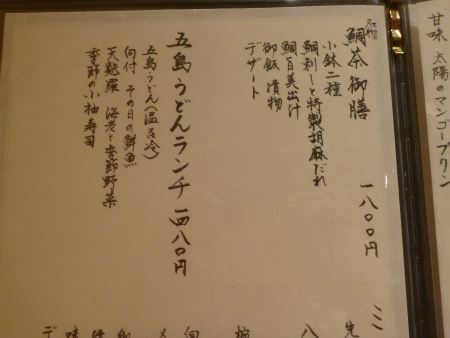 甘味 太陽のマンゴープリン
名物 鯛茶御膳 一八〇〇円
小鉢二種
鯛刺しと特製胡麻だれ
鯛旨美出汁
御飯 漬物
デザート
五島うどんランチ 一四八〇円
五島うどん(温or冷)
向付 その日の鮮魚
天麩羅 海老と季節野菜
季節の小袖寿司